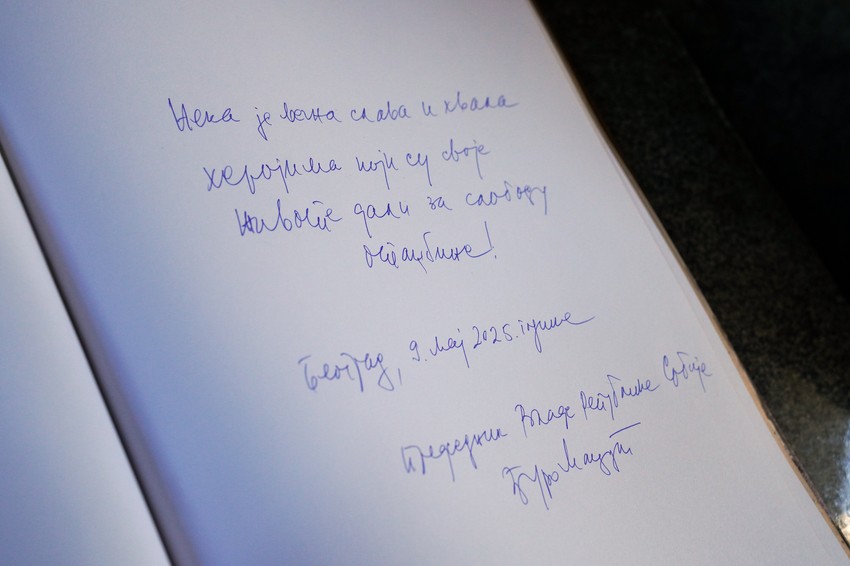 Нека је вечна слава и хвала
херојима који су своје
животе дали за слободу
отаџбине!
Београд, 9. мај 2025. године
Председник Владе Републике Србије
Ђуро Мацут